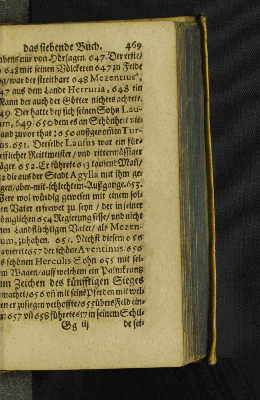 das siebende Buch. 469
bens nur von Hörsagen. 647. Der erste/
648 mit seinen Völckeren 647 zu Felde
zog/ war der streitbare 648 Mezentius,
647 aus dem Lande Herruria, 648 ein
Mann der auch der Götter nichts achtete.
49. Der hatte bey sich seinen Sohn Lau-
sum, 649/650 dem es an Schönheit nie-
mand zuvor that 650 ausgenoſſen Tur-
nus. 651. Derselbe Lausus war ein für-
trefflicher Reittmeister/ und rittermäßiger
Jäger 652. Er führete 653 tausend Mañ/
die aus der Stadt Agylla mit ihm ge-
gen/ aber-mit-schlechtem-Außgange. 653.
Were wol würdig gewesen mit einem sol-
en Vater erfrewet zu seyn / der in seiner
öniglichen 654 Regierung sesse/ und nicht
nen Landflüchtigen Vater/ als Mezen-
tium, zuhaben. 655. Nechst diesem 656
657 der schöne Aventinus 656
s schönen Herculis Sohn 655 mit sei-
m Wagen/ auff welchem ein Palmkrantz
um Zeichen des künfftigen Sieges
gemachet/ 656 vñ mit seinē Pferden mit wel-
en er zusiegen verhoffte/ 655 übers Feld ein-
: 657 vñ 658 führete 657 in seinem Schil-
Gg iij de sei-